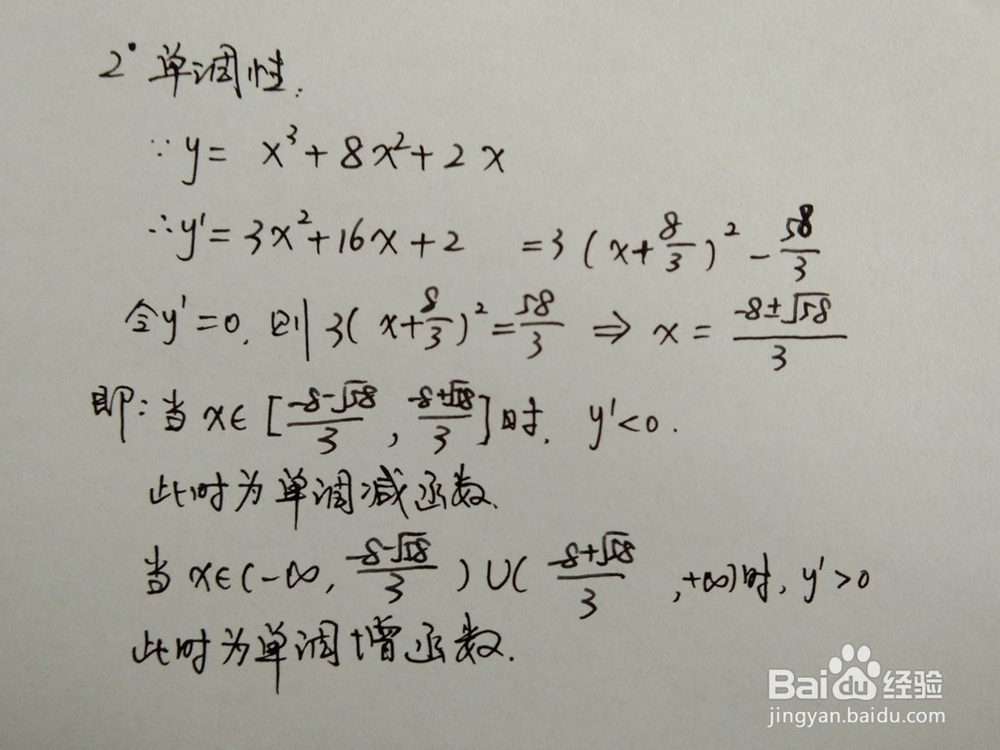 2° 单调性.
∵y= x³+8x²+2x
∴y'=3x²+16x+2 =3(x+8/3)²-58/3
令y'=0, 则3(x+8/3)²=58/3 ⇒ x=(-8±√58)/3
即:当x∈[(-8-√58)/3, (-8+√58)/3]时, y'<0.
此时为单调减函数.
当x∈(-∞, (-8-√58)/3)∪((-8+√58)/3, +∞)时, y'>0
此时为单调增函数.
Baidu经验
jingyan.baidu.com